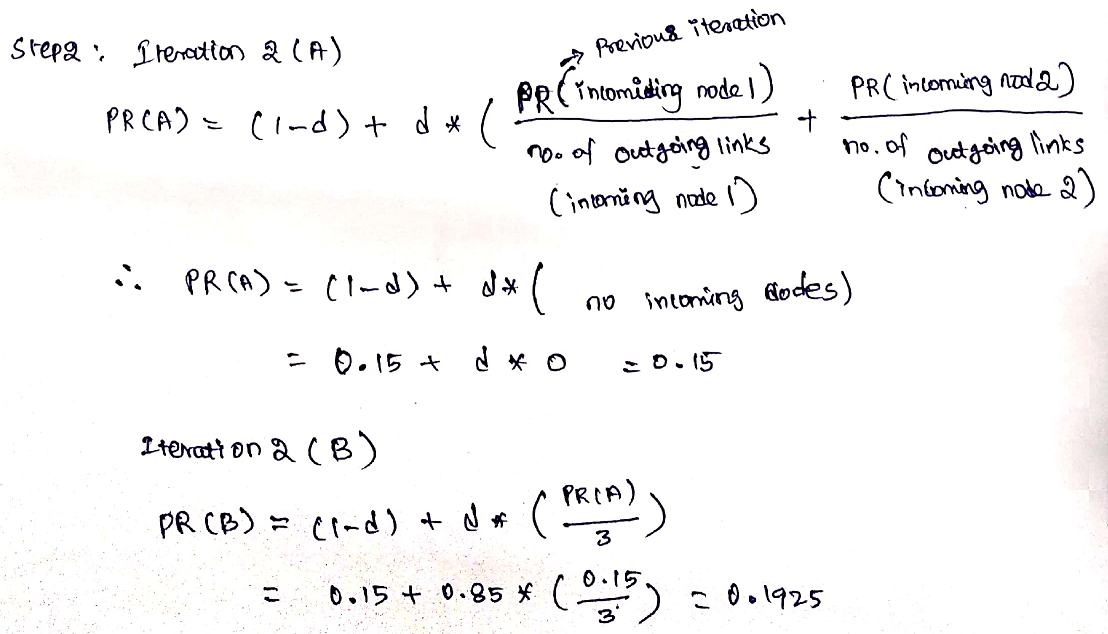 Step2: Iteration 2 (A)
→ Previous iteration
PR(A) = (1-d) + d * ( PR(incomiding node 1) / no. of outgoing links (incoming node 1) + PR(incoming nod 2) / no. of outgoing links (incoming node 2)
∴ PR(A) = (1-d) + d* ( no incoming nodes)
= 0.15 + d * 0 = 0.15
Iteration 2 (B)
PR(B) = (1-d) + d * ( PR(A) / 3 )
= 0.15 + 0.85 * ( 0.15 / 3 ) = 0.1925